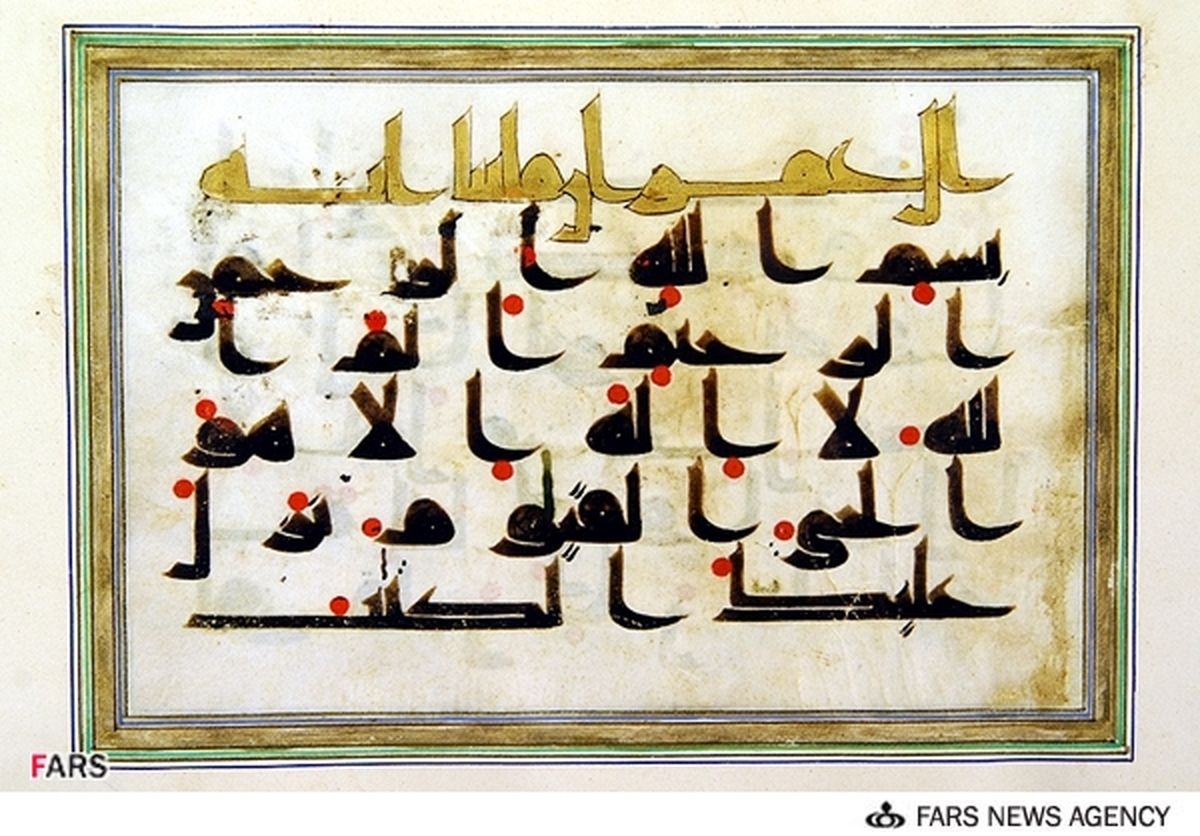 ال عمران مايتا ايه
بسم الله الرحمن
الرحيم الم ا
لله لا اله الا هو
الحي القيوم نزل
عليك الكتب
FARS
FARS NEWS AGENCY